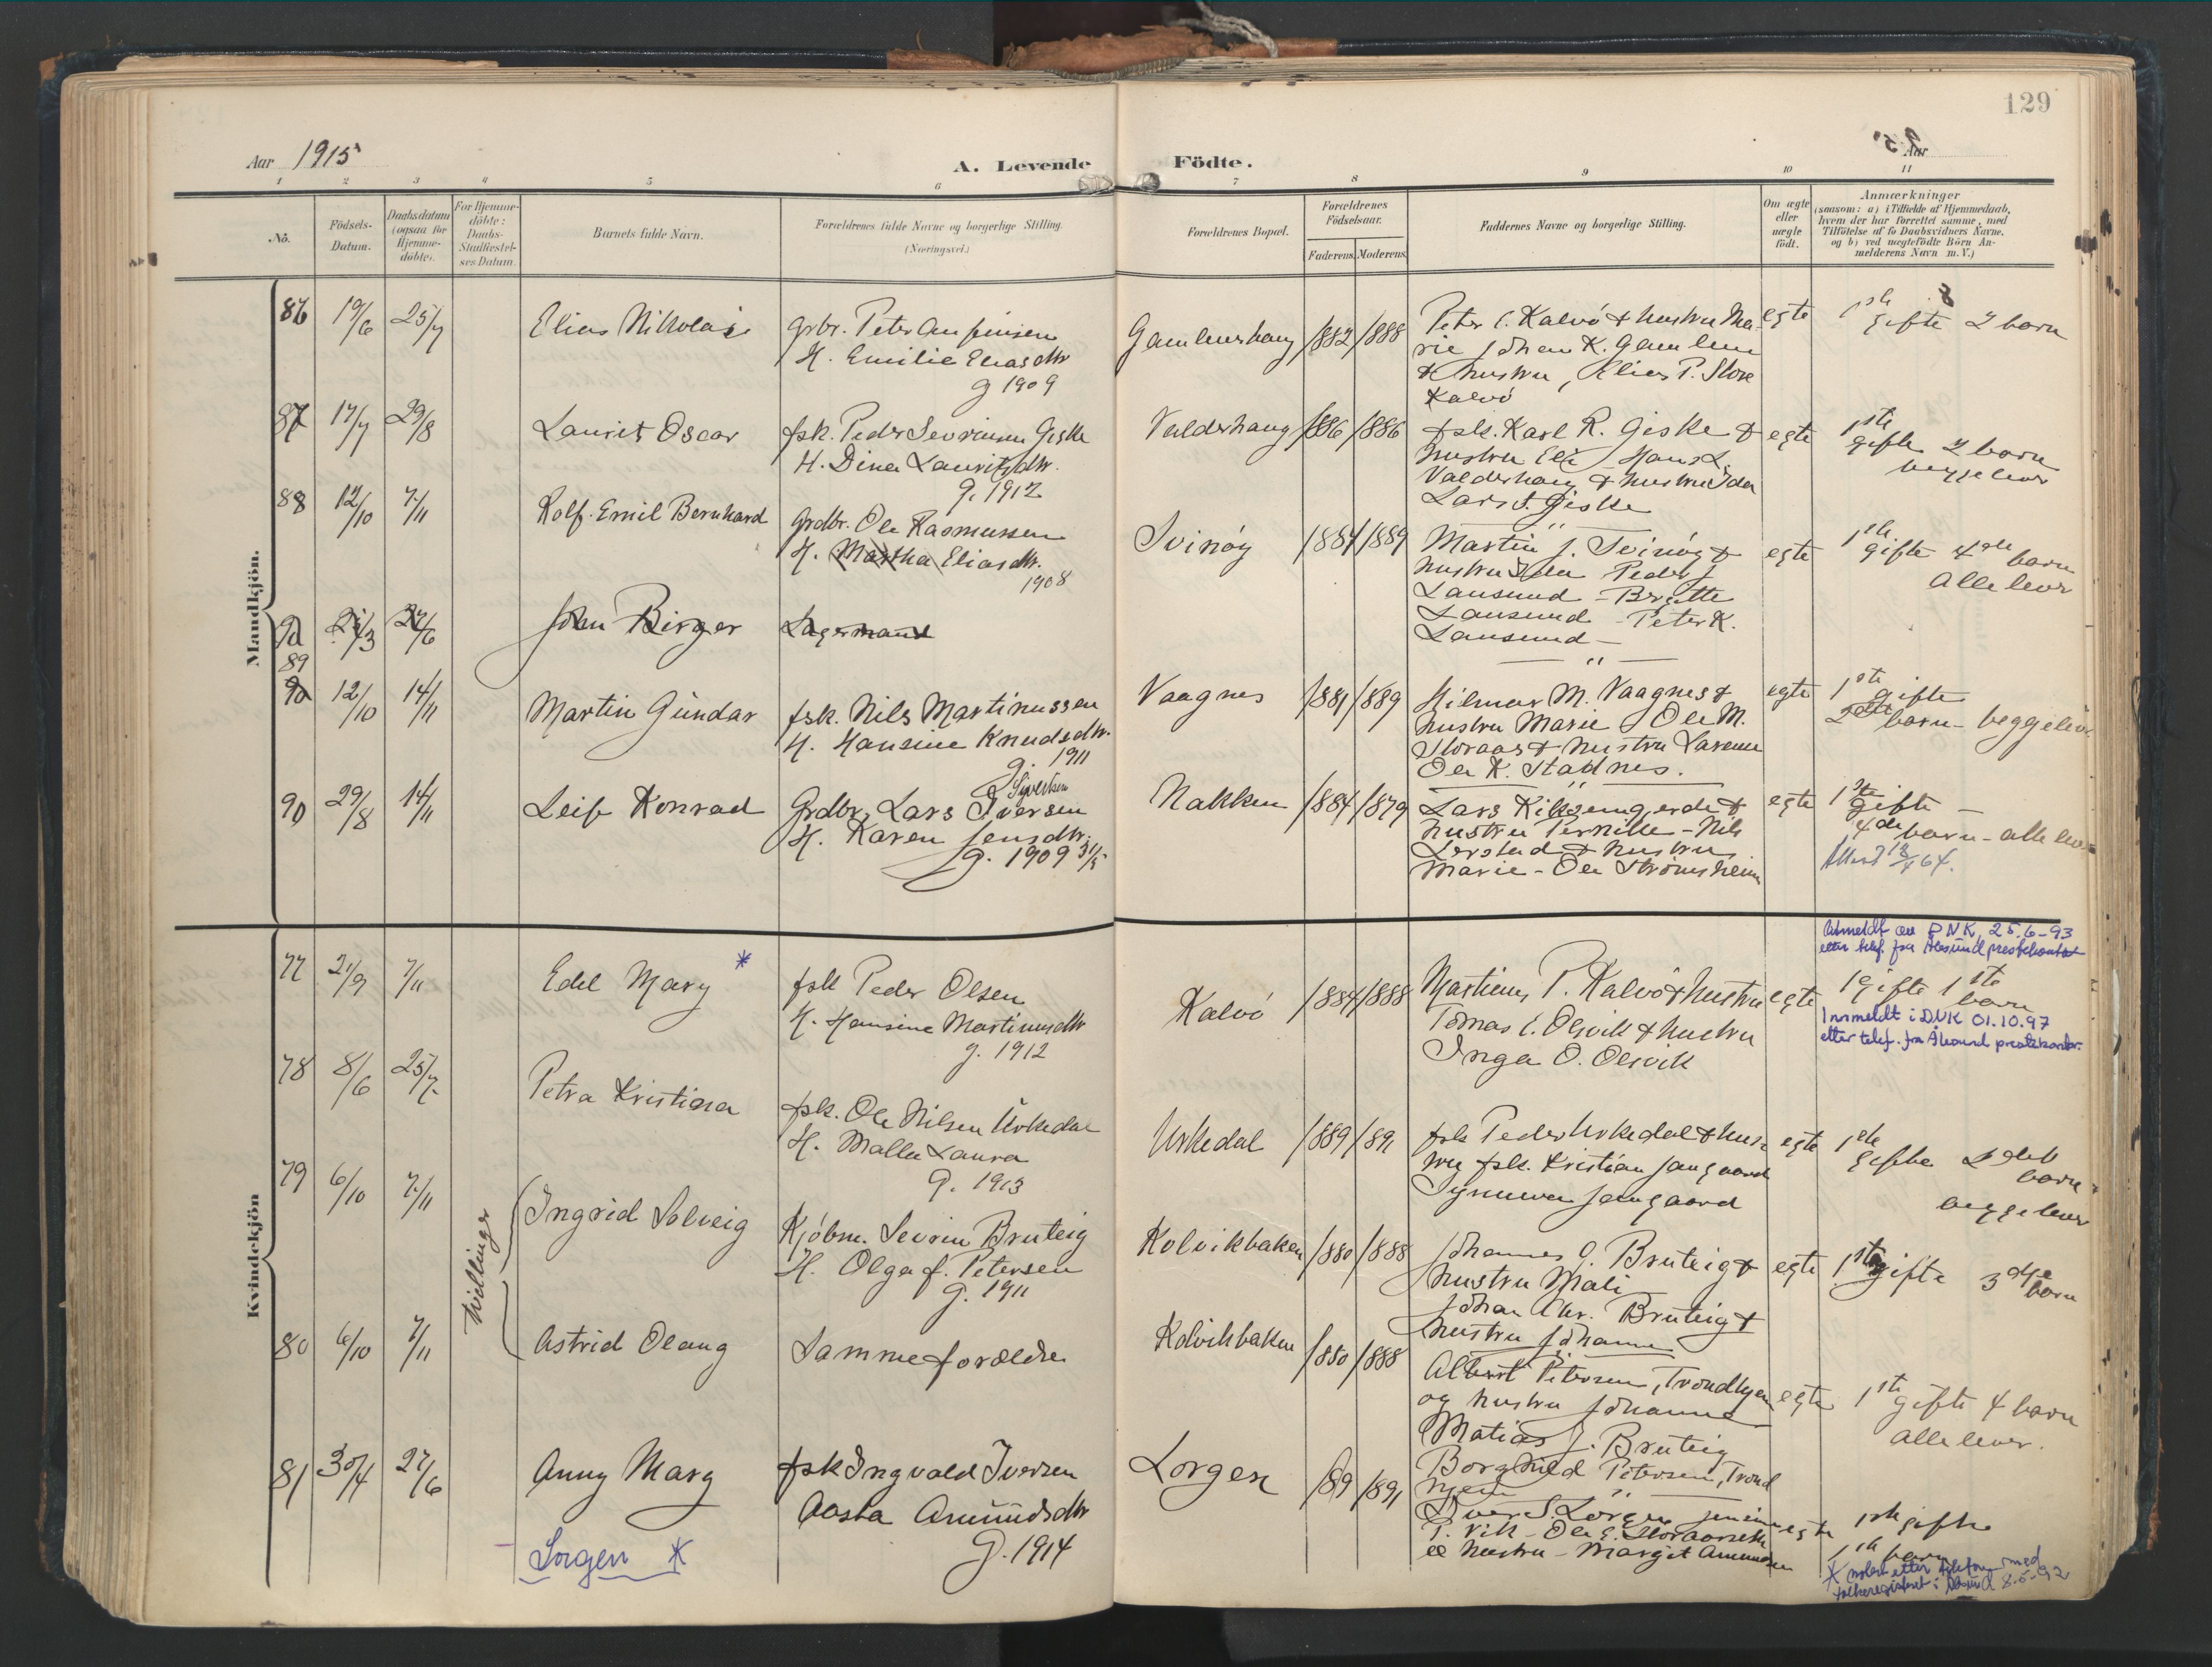 129
Aar 1915
A. Levende
Födte.
Aar
1 2 3 4 5 6 7 8 9 10 11
No.
Födsels-
Datum.
Daabsdatum
(ogsaa for
Hjemme-
döbte).
For Hjemme-
döbte:
Daabs-
Stadfæstel-
ses Datum.
Barnets fulde Navn.
Forældrenes fulde Navne og borgerlige Stilling.
(Næringsvei.)
Forældrenes Bopæl.
Forældrenes
Födselsaar.
Faderens. Moderens.
Faddernes Navne og borgerlige Stilling.
Om ægte
eller
uægte
födt.
Anmærkninger
(saasom: a) i Tilfælde af Hjemmedaab,
hvem der har forrettet samme, med
Tilföielse af to Daabsvidners Navne.
og b) ved uægtefödte Börn An-
melderens Navn m. V.)
Mandkjön.
86 19/6 25/7 Elias Nikolai
Grbr. Peter
H. Emilie Eliasdtr
g 1909
1882 1888
Peter C. Kalvö & hustru Ma-
rie Johan K. Gamlem
& hustru, Elias P. Store
Kalvö
egte
1ste gifte 2 barn
87 17/7 29/8 Laurits Oscar
fsk. Peder Severinsen Giske
H. Dina Lauritsdtr.
g. 1912
Valderhaug 1886 1886
fsk. Karl R. Giske &
hustru Eli - Hans L.
Valderhaug & hustru Ida
Lars J. Giske
egte
1ste
gifte 2 barn
begge lever
88 12/10 7/11 Rolf Emil Bernhard
Grdbr. Ole Rasmussen
H. Martha Eliasdtr.
1908
Svinöy 1884 1889
Martin J. Svinöy &
hustru Ida Peder J
Lausund - Brritte
Lausund - Peter K.
Lausund -
egte
1ste gifte 4de barn
Alle lever
90 27/6 John Birger
Lagermand
89
90 12/10 14/11 Martin Gundar
fsk. Nils Martinussen
H. Hansine Knudsdtr.
g. 1911
Vaagnes 1881 1889
Hilmar M. Vaagnes &
hustru Marie Ole M.
Storaas & hustru Larine
Ole K. Stadnes.
egte
1ste gifte
2det barn - begge lever
90 29/8 14/11 Leif Konrad
Syvertsen
Grdbr. Lars Iversen
H. Karen Jensdtr.
g. 1909 31/5
Nakken 1884 1879
Lars &
hustru Pernille - Nils
Lerstad & hustru
Marie - Ole Strömsheim
egte
1ste gifte -
4de barn - alle lever
Attest 18/4 64.
Kvindekjön
Utmeldt av DNK, 25.6-93
etter telef. fra Ålesund prestekontor
77 21/9 7/11 Edel Mary *
fsk Peder Olsen
H. Hansine Martinusdtr
g. 1912
Kalvö 1884 1888
Martinus P. Kalvö & hustru
Tomas C. Olsvik & hustru
Inga O. Olsvik
egte
1 gifte 1ste
barn
Innmeldt i DNK 01.10.97
etter telef. fra Ålesund prestekontor.
78 8/6 25/7 Petra Kristiana
fsk. Ole Nilsen Urkedal
H. Malla Laura
g. 1913
Urkedal 1889 1891
fsk Peder Urkedal & hus-
tru fsk. Kristian Jangaard
Synneva Jangaard
egte
1ste
gifte 2det
barn
begge lever
Tvillinger
79 6/10 7/11 Ingrid Solveig
Kjöbm. Sevrin Bruteig
H. Olga f. Petersen
g. 1911
Kolvikbaken 1880 1888
Johannes J. Bruteig &
hustru Mali
Johan Chr. Bruteig &
hustru Johanne
egte
1ste gifte 3dje
barn
80 6/10 7/11 Astrid Olaug
Samme forældre
Kolvikbaken 1880 1888
Albert Petersen, Trondhjem
og hustru Johanne
Matias J. Bruteig
Borghild Petersen, Trond
hjem
egte
1ste gifte 4 barn
alle lever.
81 30/4 27/6 Anny Marg
fsk Ingvald Iversen
Aasta Amundsdtr
g. 1914
Lorgen 189 1891
Iver S. Lorgen
P. Vik - Ole E.
& hustru - Margit Amundsen
egte
1ste gifte
1ste barn
Lorgen *
* notert etter telefon med
folkeregisteret i Ålesund 8.5.92